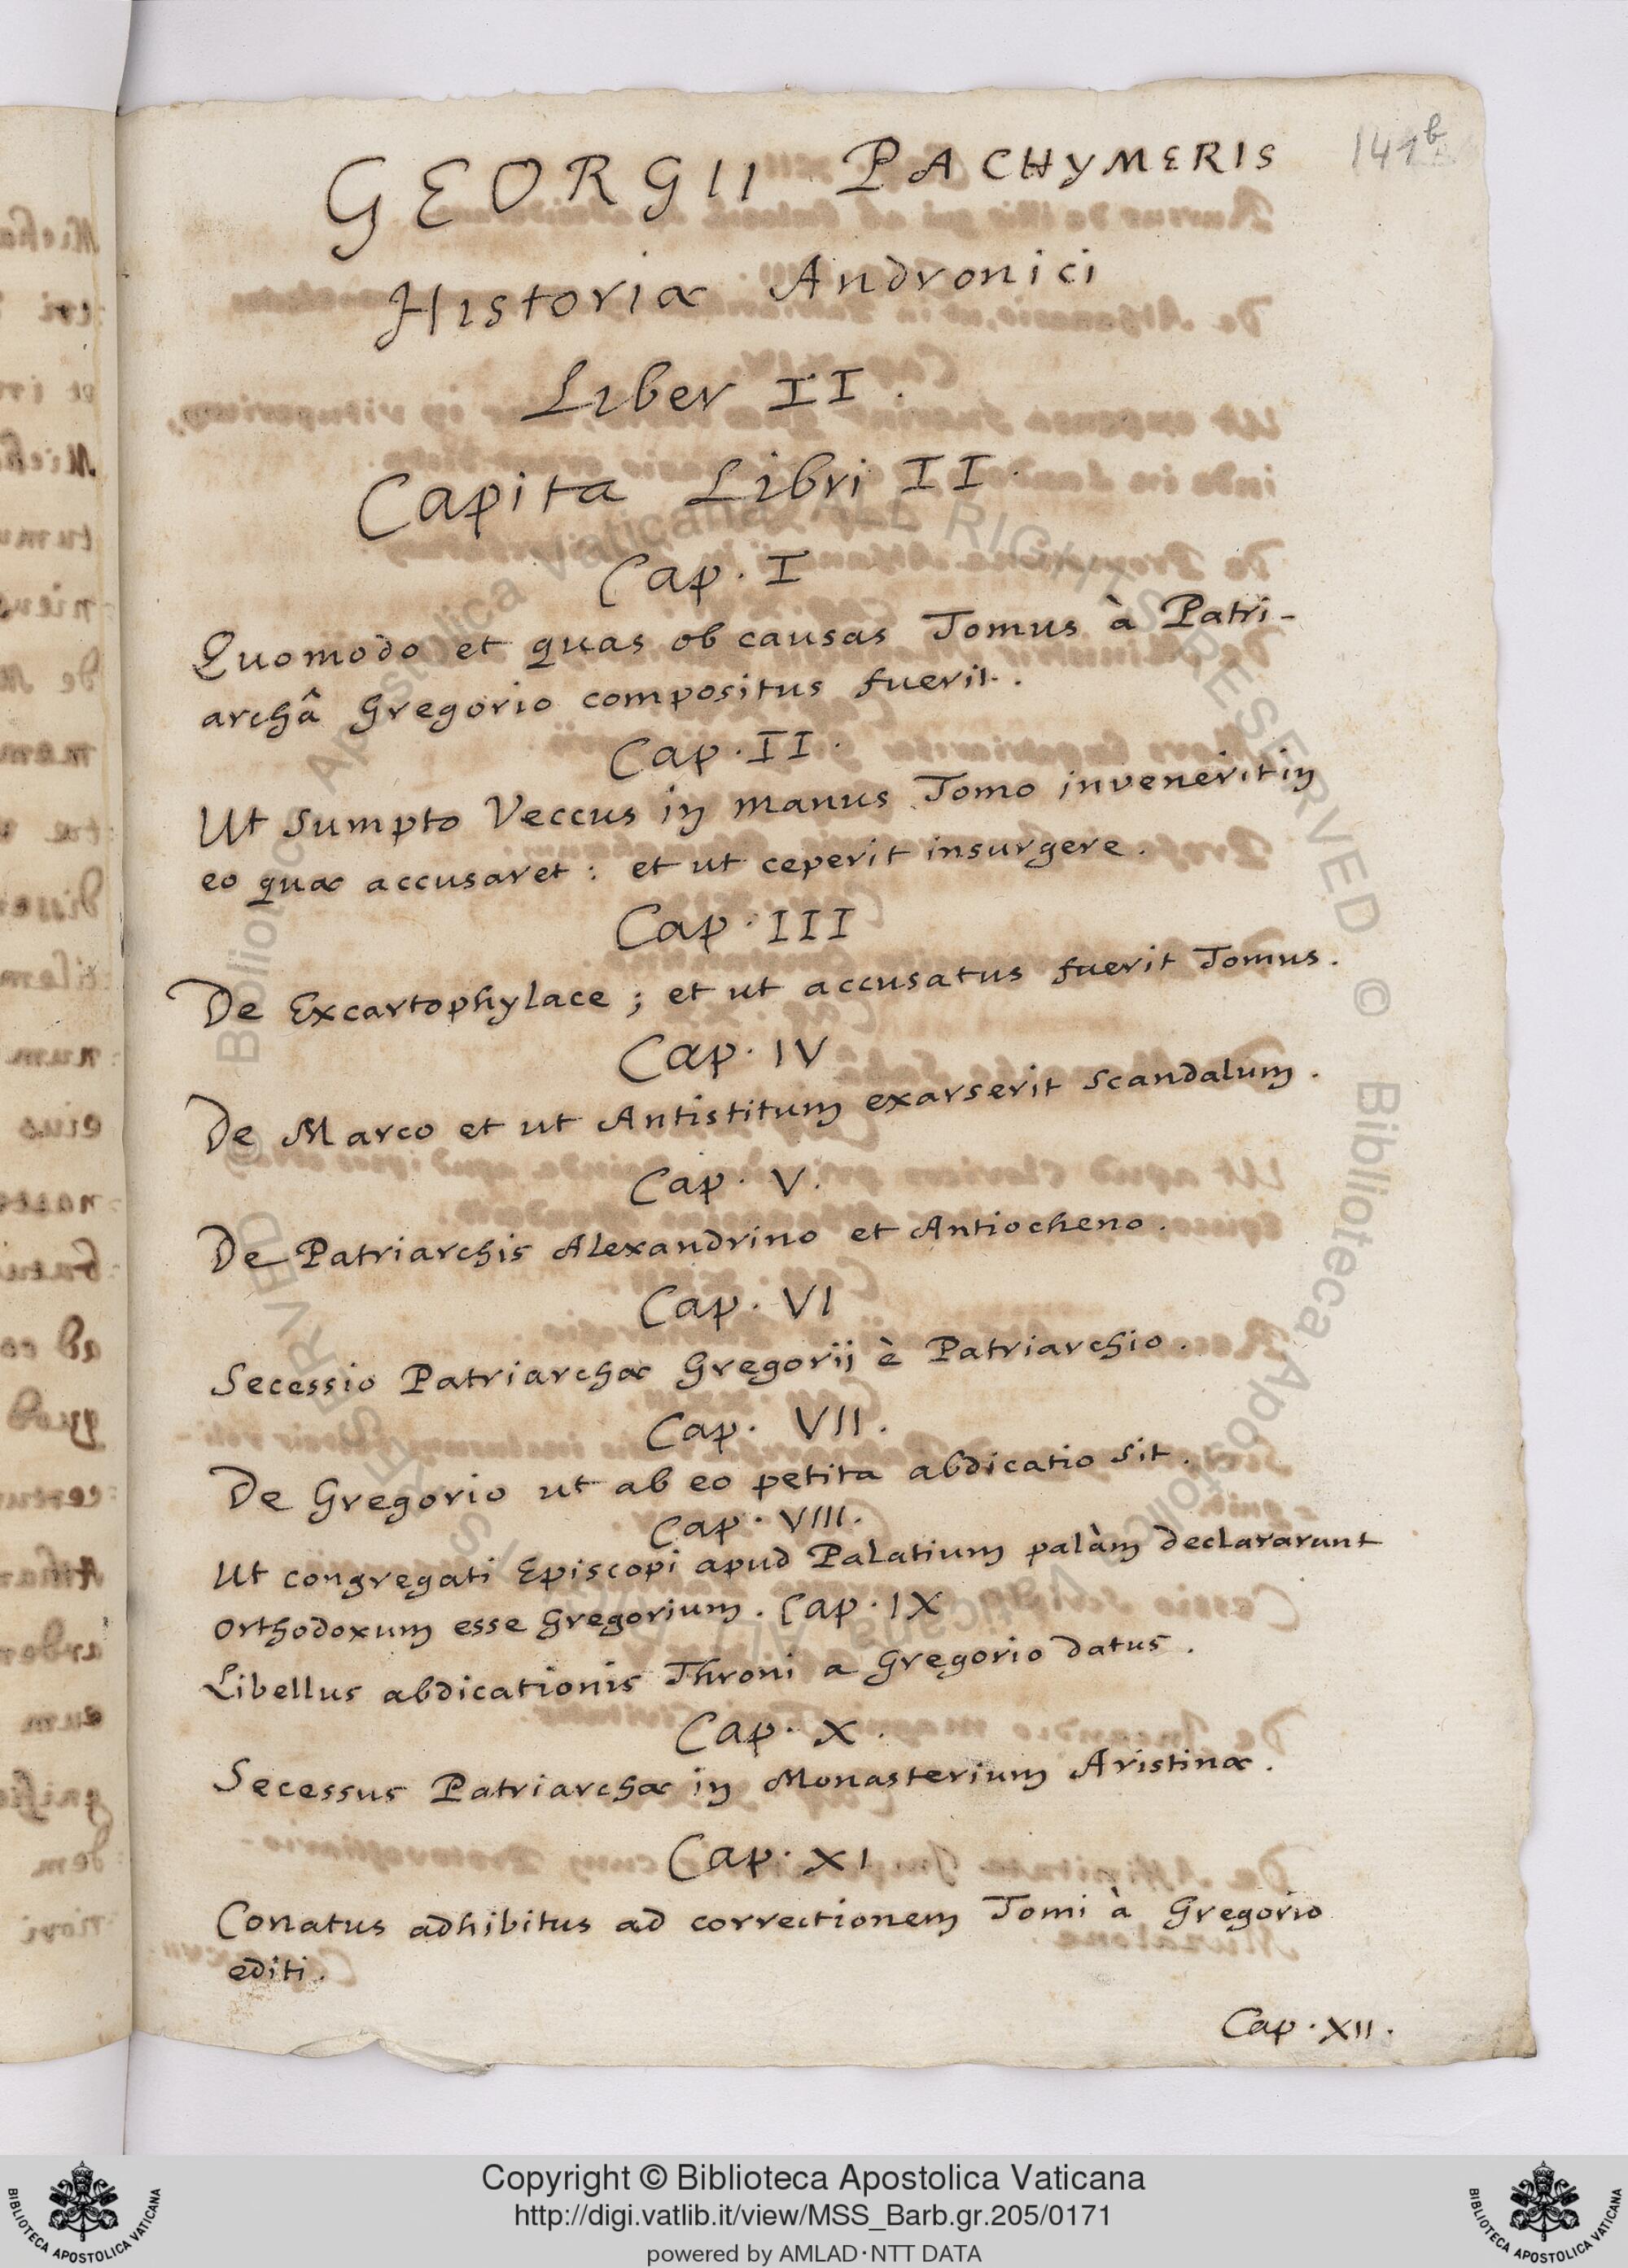 141b
GEORGII PACHYMERIS
Historiæ Andronici
Liber II.
Capita Libri II.
Cap. I
Quomodo et quas ob causas Tomus à Patri-
archâ Gregorio compositus fuerit.
Cap. II.
Ut sumpto Veccus in manus Tomo invenerit in
eo quæ accusaret: et ut ceperit insurgere.
Cap. III
De Excartophylace; et ut accusatus fuerit Tomus.
Cap. IV
De Marco et ut Antistitum exarserit scandalum.
Cap. V.
De Patriarchis Alexandrino et Antiocheno.
Cap. VI
Secessio Patriarchæ Gregorij è Patriarchio.
Cap. VII.
De Gregorio ut ab eo petita abdicatio sit.
Cap. VIII.
Ut congregati Episcopi apud Palatium palàm declararunt
orthodoxum esse Gregorium. Cap. IX
Libellus abdicationis Throni a Gregorio datus.
Cap. X.
Secessus Patriarchæ in Monasterium Aristinæ.
Cap. XI
Conatus adhibitus ad correctionem Tomi à Gregorio
editi.
Cap. XII.
Copyright © Biblioteca Apostolica Vaticana
http://digi.vatlib.it/view/MSS_Barb.gr.205/0171
powered by AMLAD·NTT DATA
BIBLIOTECA APOSTOLICA VATICANA
BIBLIOTECA APOSTOLICA VATICANA